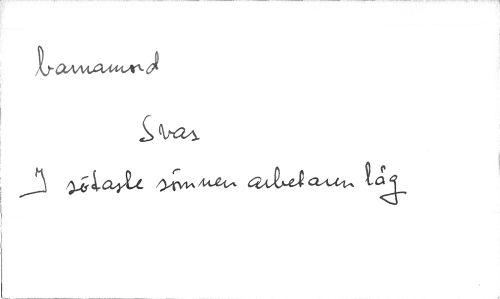 barnamord
Svas
I sötaste sömnen arbetaren låg